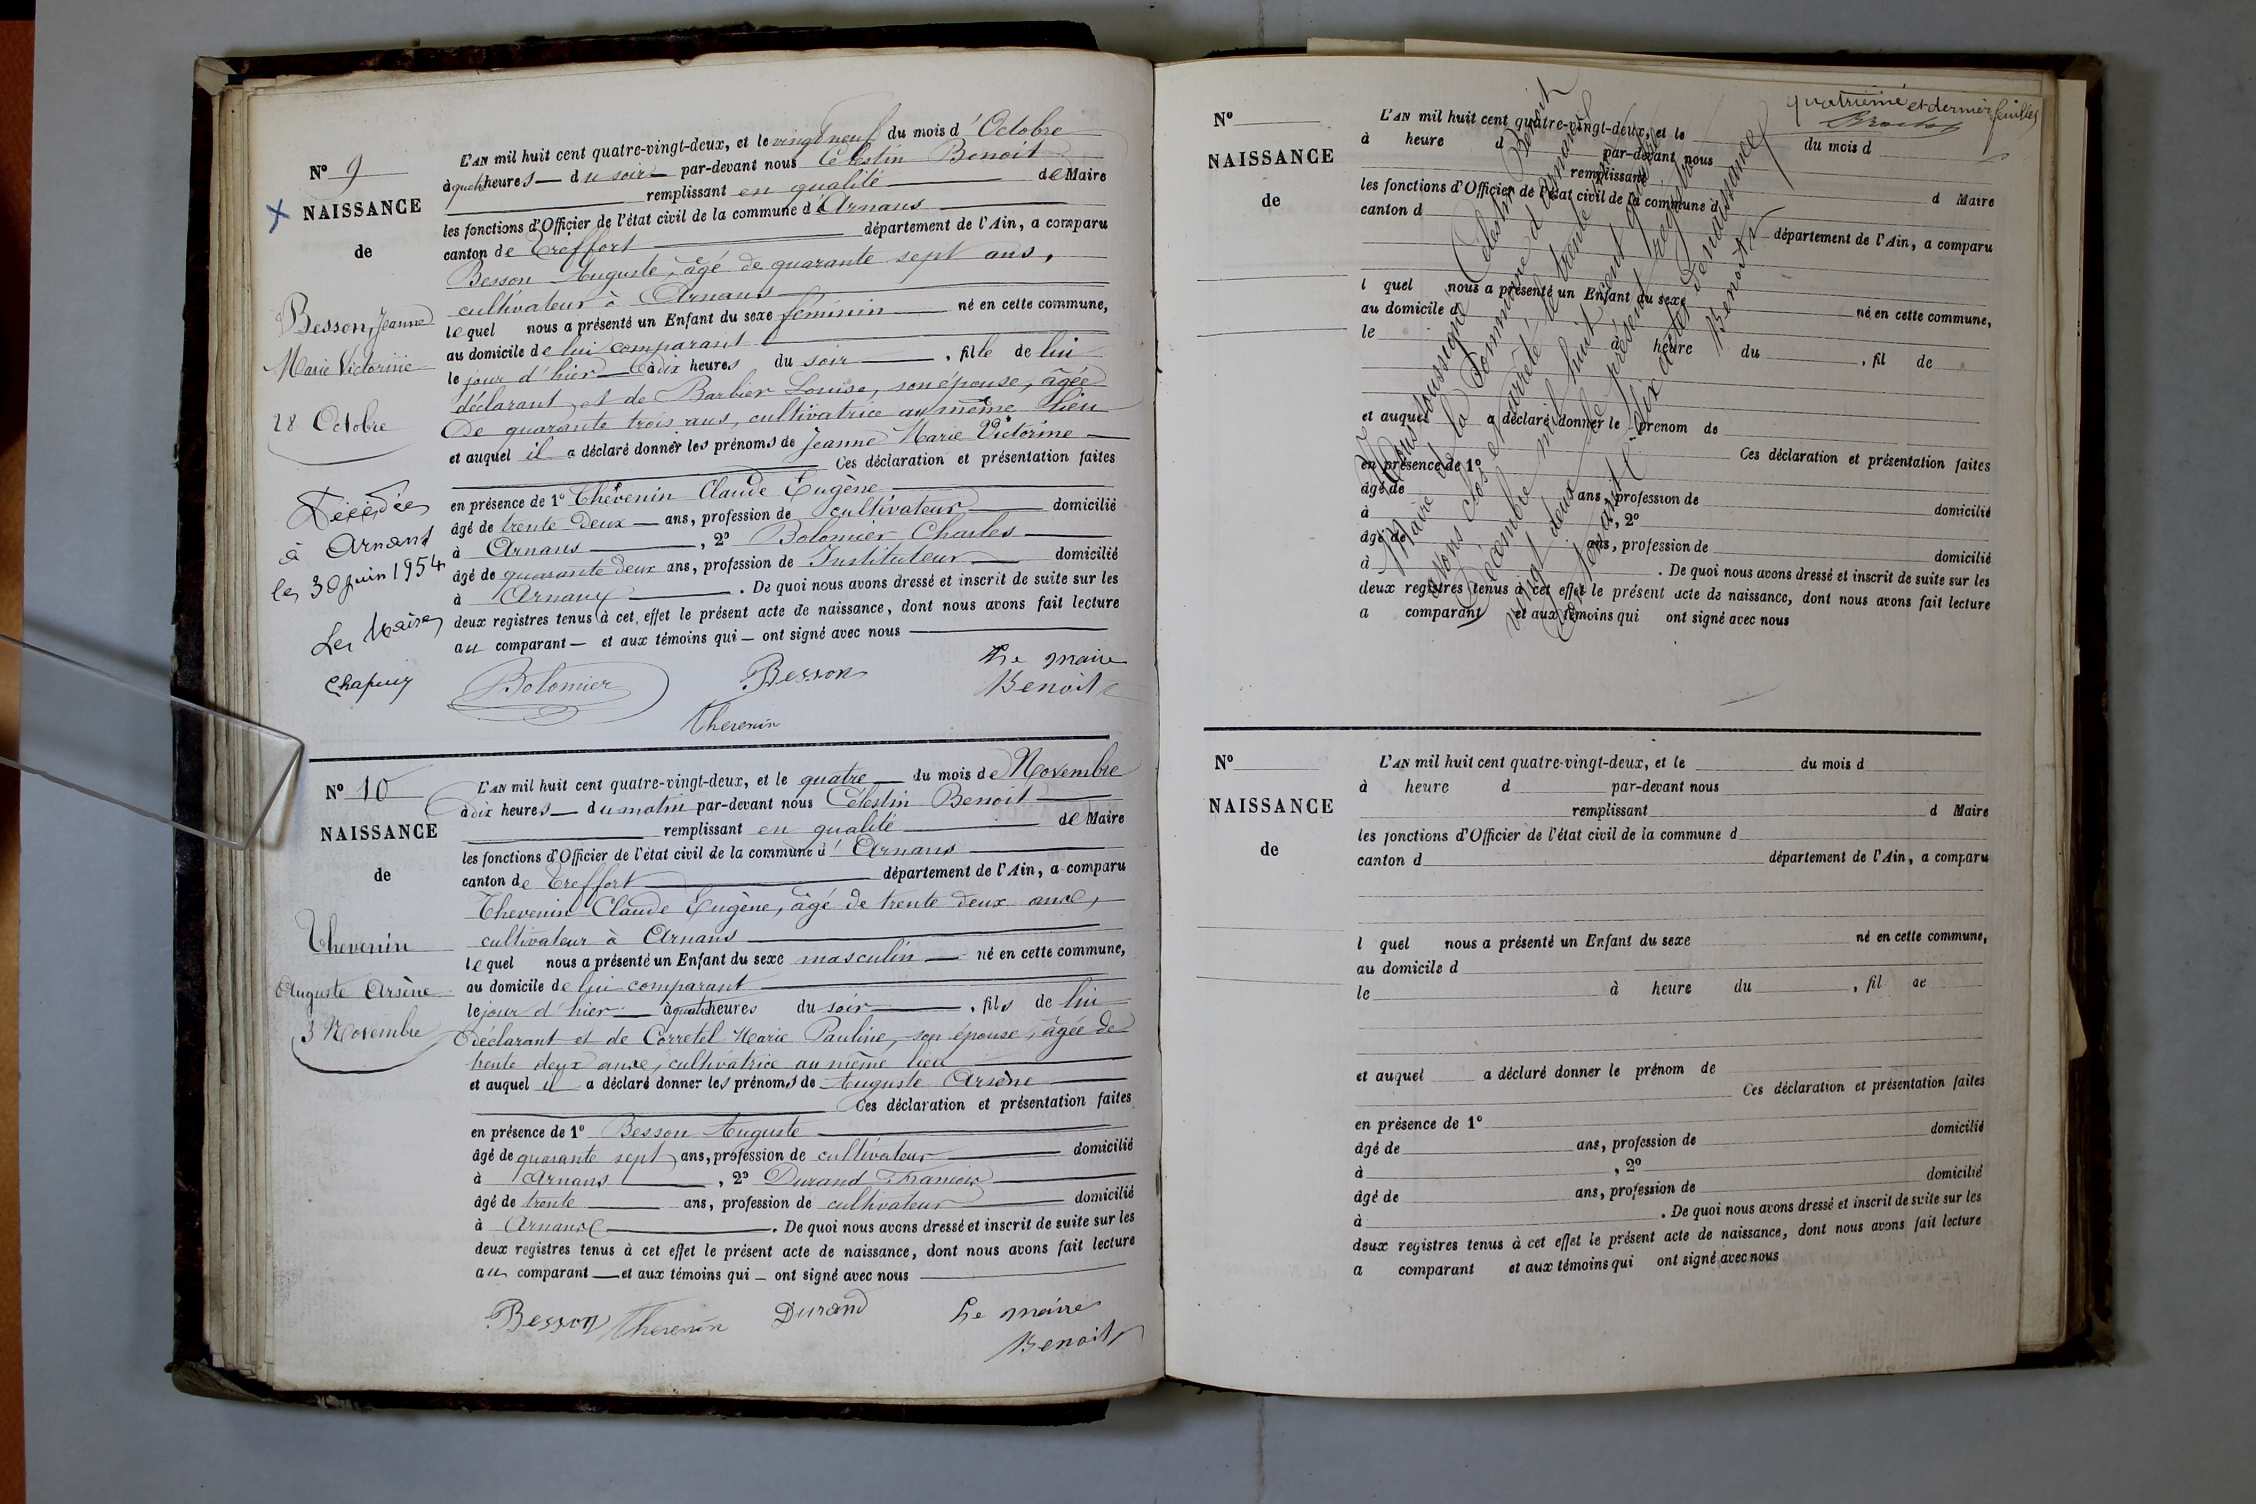 N° 9
NAISSANCE
de
Besson, Jeanne
Marie Victorine
28 Octobre
Décédée
à Arnans
le 30 juin 1954
Le Maire
Chapuy
L'AN mil huit cent quatre-vingt-deux, et le vingt neuf du mois d'Octobre
à quatre heures du soir par-devant nous Célestin Benoit
remplissant en qualité de Maire
les fonctions d'Officier de l'état civil de la commune d'Arnans
canton de Treffort département de l'Ain, a comparu
Besson Auguste, âgé de quarante sept ans,
cultivateur à Arnans
lequel nous a présenté un Enfant du sexe féminin né en cette commune,
au domicile de lui comparant
le jour d'hier à dix heures du soir, fille de lui
déclarant et de Barbier Louise, son épouse, âgée
de quarante trois ans, cultivatrice au même lieu
et auquel il a déclaré donner les prénoms de Jeanne Marie Victorine
Ces déclaration et présentation faites
en présence de 1° Thévenin Claude Eugène
âgé de trente deux ans, profession de cultivateur domicilié
à Arnans, 2° Bolomier Charles
âgé de quarante deux ans, profession de Instituteur domicilié
à Arnans. De quoi nous avons dressé et inscrit de suite sur les
deux registres tenus à cet effet le présent acte de naissance, dont nous avons fait lecture
au comparant et aux témoins qui ont signé avec nous
Bolomier Besson Le maire
Benoit
Thevenin
N° 10
NAISSANCE
de
Thevenin
Auguste Arsène
3 Novembre
L'AN mil huit cent quatre-vingt-deux, et le quatre du mois de Novembre
à dix heures du matin par-devant nous Célestin Benoit
remplissant en qualité de Maire
les fonctions d'Officier de l'état civil de la commune d'Arnans
canton de Treffort département de l'Ain, a comparu
Thevenin Claude Eugène, âgé de trente deux ans,
cultivateur à Arnans
lequel nous a présenté un Enfant du sexe masculin né en cette commune,
au domicile de lui comparant
le jour d'hier à quatre heures du soir, fils de lui
déclarant et de Corretel Marie Pauline, son épouse, âgée de
trente deux ans, cultivatrice au même lieu
et auquel il a déclaré donner les prénoms de Auguste Arsène
Ces déclaration et présentation faites
en présence de 1° Besson Auguste
âgé de quarante sept ans, profession de cultivateur domicilié
à Arnans, 2° Durand François
âgé de trente ans, profession de cultivateur domicilié
à Arnans. De quoi nous avons dressé et inscrit de suite sur les
deux registres tenus à cet effet le présent acte de naissance, dont nous avons fait lecture
au comparant et aux témoins qui ont signé avec nous
Besson Thevenin Durand Le maire
Benoit
quatrième et dernier feuillet
N°
NAISSANCE
de
L'AN mil huit cent quatre-vingt-deux, et le du mois d
à heure d par-devant nous
remplissant d Maire
les fonctions d'Officier de l'état civil de la commune d
canton d département de l'Ain, a comparu
l quel nous a présenté un Enfant du sexe né en cette commune,
au domicile d
le à heure du , fil de
et auquel a déclaré donner le prénom de
Ces déclaration et présentation faites
en présence de 1°
âgé de ans, profession de domicilié
à , 2°
âgé de ans, profession de domicilié
à . De quoi nous avons dressé et inscrit de suite sur les
deux registres tenus à cet effet le présent acte de naissance, dont nous avons fait lecture
a comparant et aux témoins qui ont signé avec nous
Nous soussigné Célestin Benoit
Maire de la commune d'Arnans
avons clos et arrêté le trente un
Décembre mil huit cent quatre
vingt deux le présent registre
contenant dix actes de naissance
Benoit
N°
NAISSANCE
de
L'AN mil huit cent quatre-vingt-deux, et le du mois d
à heure d par-devant nous
remplissant d Maire
les fonctions d'Officier de l'état civil de la commune d
canton d département de l'Ain, a comparu
l quel nous a présenté un Enfant du sexe né en cette commune,
au domicile d
le à heure du , fil de
et auquel a déclaré donner le prénom de
Ces déclaration et présentation faites
en présence de 1°
âgé de ans, profession de domicilié
à , 2°
âgé de ans, profession de domicilié
à . De quoi nous avons dressé et inscrit de suite sur les
deux registres tenus à cet effet le présent acte de naissance, dont nous avons fait lecture
a comparant et aux témoins qui ont signé avec nous